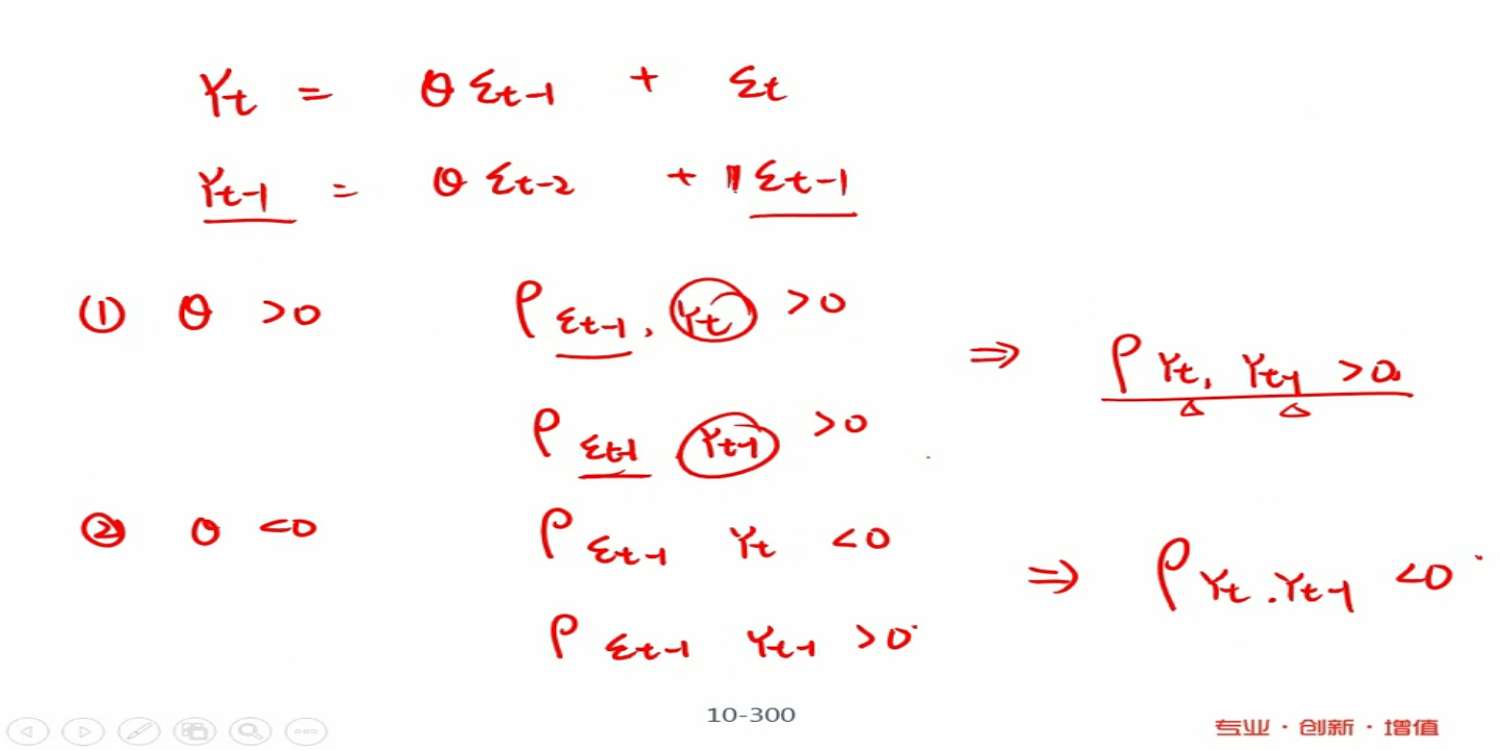 Yt = θ εt-1 + εt
Yt-1 = θ εt-2 + 1 εt-1
① θ >0 ρ εt-1, Yt >0
⇒ ρ Yt, Yt-1 >0
ρ εt-1 Yt-1 >0
② θ <0 ρ εt-1 Yt <0
⇒ ρ Yt, Yt-1 <0
ρ εt-1 Yt-1 >0
10-300
专业·创新·增值